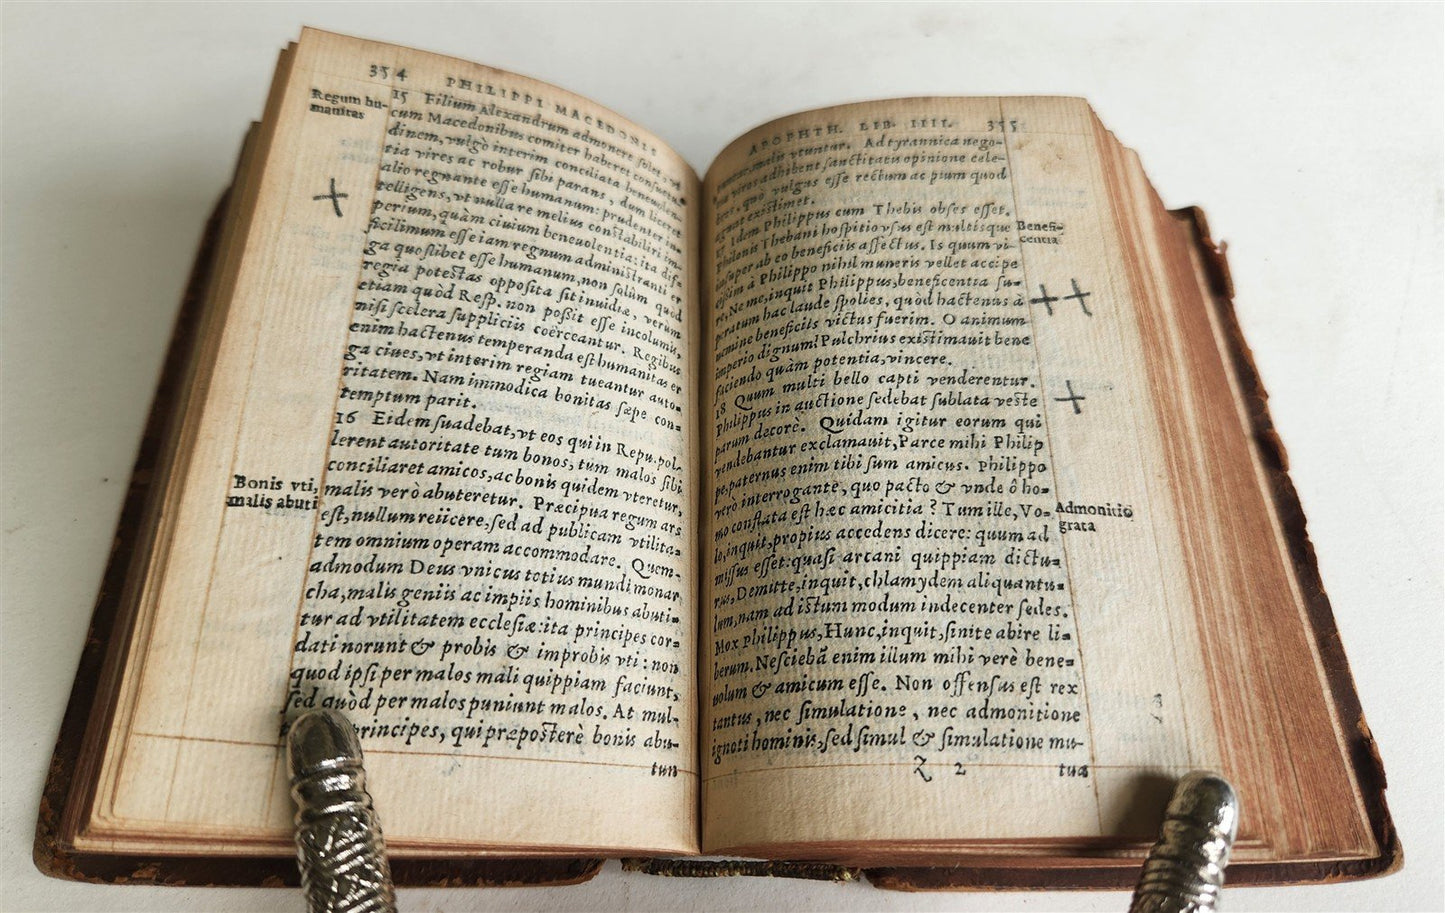 354 PHILIPPI MACEDONIS
Regum hu-
manitas
15 Filium Alexandrum admonere solet, vt
cum Macedonibus comiter haberet consuetu-
dinem, vulgò interim conciliata beneuolen-
tia vires ac robur sibi parans, dum liceret
alio regnante esse humanum: prudenter in-
telligens, vt nulla re melius constabiliri im-
perium, quàm ciuium beneuolentia: ita dif-
ficilimum esse iam regnum administranti er
ga quoslibet esse humanum, non solùm quod
regia potestas opposita sit inuidiæ, verum
etiam quòd Resp. non poßit esse incolumis,
nisi scelera suppliciis coërceantur. Regibus
enim hactenus temperanda est humanitas er
ga ciues, vt interim regiam tueantur auto-
ritatem. Nam immodica bonitas sæpe con-
temptum parit.
16 Eidem suadebat, vt eos qui in Repu. pol-
lerent autoritate tum bonos, tum malos sibi
conciliaret amicos, ac bonis quidem vteretur,
Bonis vti,
malis abuti
malis verò abuteretur. Præcipua regum ars
est, nullum reiicere, sed ad publicam vtilita-
tem omnium operam accommodare. Quem-
admodum Deus vnicus totius mundi monar
cha, malis geniis ac impiis hominibus abuti-
tur ad vtilitatem ecclesiæ: ita principes cor-
dati norunt & probis & improbis vti: non
quod ipsi per malos mali quippiam faciunt,
sed quòd per malos puniunt malos. At mul-
principes, qui præposterè bonis abu-
tun
APOPHTH. LIB. IIII. 355
vtuntur. Ad tyrannica nego-
viros adhibent sanctitatis opinione cele-
quò vulgus esse rectum ac pium quod
existimet.
Idem Philippus cum Thebis obses esset,
Philonis Thebani hospitio vsus est multisque
Benefi-
centia
insuper ab eo beneficiis affectus. Is quum vi-
cissim à Philippo nihil muneris vellet accipe
re, Ne me, inquit Philippus, beneficentia su-
peratum hac laude spolies, quòd hactenus à
nemine beneficiis victus fuerim. O animum
imperio dignum! Pulchrius existimauit bene
faciendo quàm potentia, vincere.
18 Quum multi bello capti venderentur,
Philippus in auctione sedebat sublata veste
parum decorè. Quidam igitur eorum qui
vendebantur exclamauit, Parce mihi Philip
pe, paternus enim tibi sum amicus. Philippo
verò interrogante, quo pacto & vnde ô ho-
mo conflata est hæc amicitia? Tum ille, Vo-
Admonitio
grata
lo, inquit, propius accedens dicere: quum ad
missus esset: quasi arcani quippiam dictu-
rus, Demitte, inquit, chlamydem aliquantu-
lum, nam ad istum modum indecenter sedes.
Mox Philippus, Hunc, inquit, sinite abire li-
berum. Nesciebā enim illum mihi verè bene-
uolum & amicum esse. Non offensus est rex
tantus, nec simulatione, nec admonitione
ignoti hominis, sed simul & simulatione mu-
Z 2 tua